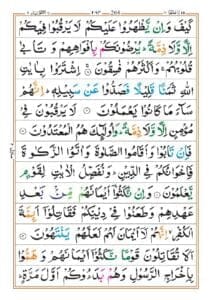 كَيْفَ وَاِنْ يَّظْهَرُوْا عَلَيْكُمْ لَا يَرْقُبُوْا فِيْكُمْ
اِلًّا وَّلَا ذِمَّةً ؕ يُرْضُوْنَكُمْ بِاَفْوَاهِهِمْ وَتَاْبٰى
قُلُوْبُهُمْ ۚ وَاَكْثَرُهُمْ فٰسِقُوْنَ ۚ اِشْتَرَوْا بِاٰيٰتِ
اللّٰهِ ثَمَنًا قَلِيْلًا فَصَدُّوْا عَنْ سَبِيْلِهٖ ؕ اِنَّهُمْ
سَآءَ مَا كَانُوْا يَعْمَلُوْنَ ۝ لَا يَرْقُبُوْنَ فِيْ مُؤْمِنٍ
اِلًّا وَّلَا ذِمَّةً ؕ وَاُولٰٓئِكَ هُمُ الْمُعْتَدُوْنَ ۝
فَاِنْ تَابُوْا وَاَقَامُوا الصَّلٰوةَ وَاٰتَوُا الزَّكٰوةَ
فَاِخْوَانُكُمْ فِي الدِّيْنِ ؕ وَنُفَصِّلُ الْاٰيٰتِ لِقَوْمٍ
يَّعْلَمُوْنَ ۝ وَاِنْ نَّكَثُوْٓا اَيْمَانَهُمْ مِّنْۢ بَعْدِ
عَهْدِهِمْ وَطَعَنُوْا فِيْ دِيْنِكُمْ فَقَاتِلُوْٓا اَئِمَّةَ
الْكُفْرِ ۙ اِنَّهُمْ لَآ اَيْمَانَ لَهُمْ لَعَلَّهُمْ يَنْتَهُوْنَ ۝
اَلَا تُقَاتِلُوْنَ قَوْمًا نَّكَثُوْٓا اَيْمَانَهُمْ وَهَمُّوْا
بِاِخْرَاجِ الرَّسُوْلِ وَهُمْ بَدَءُوْكُمْ اَوَّلَ مَرَّةٍ ؕ